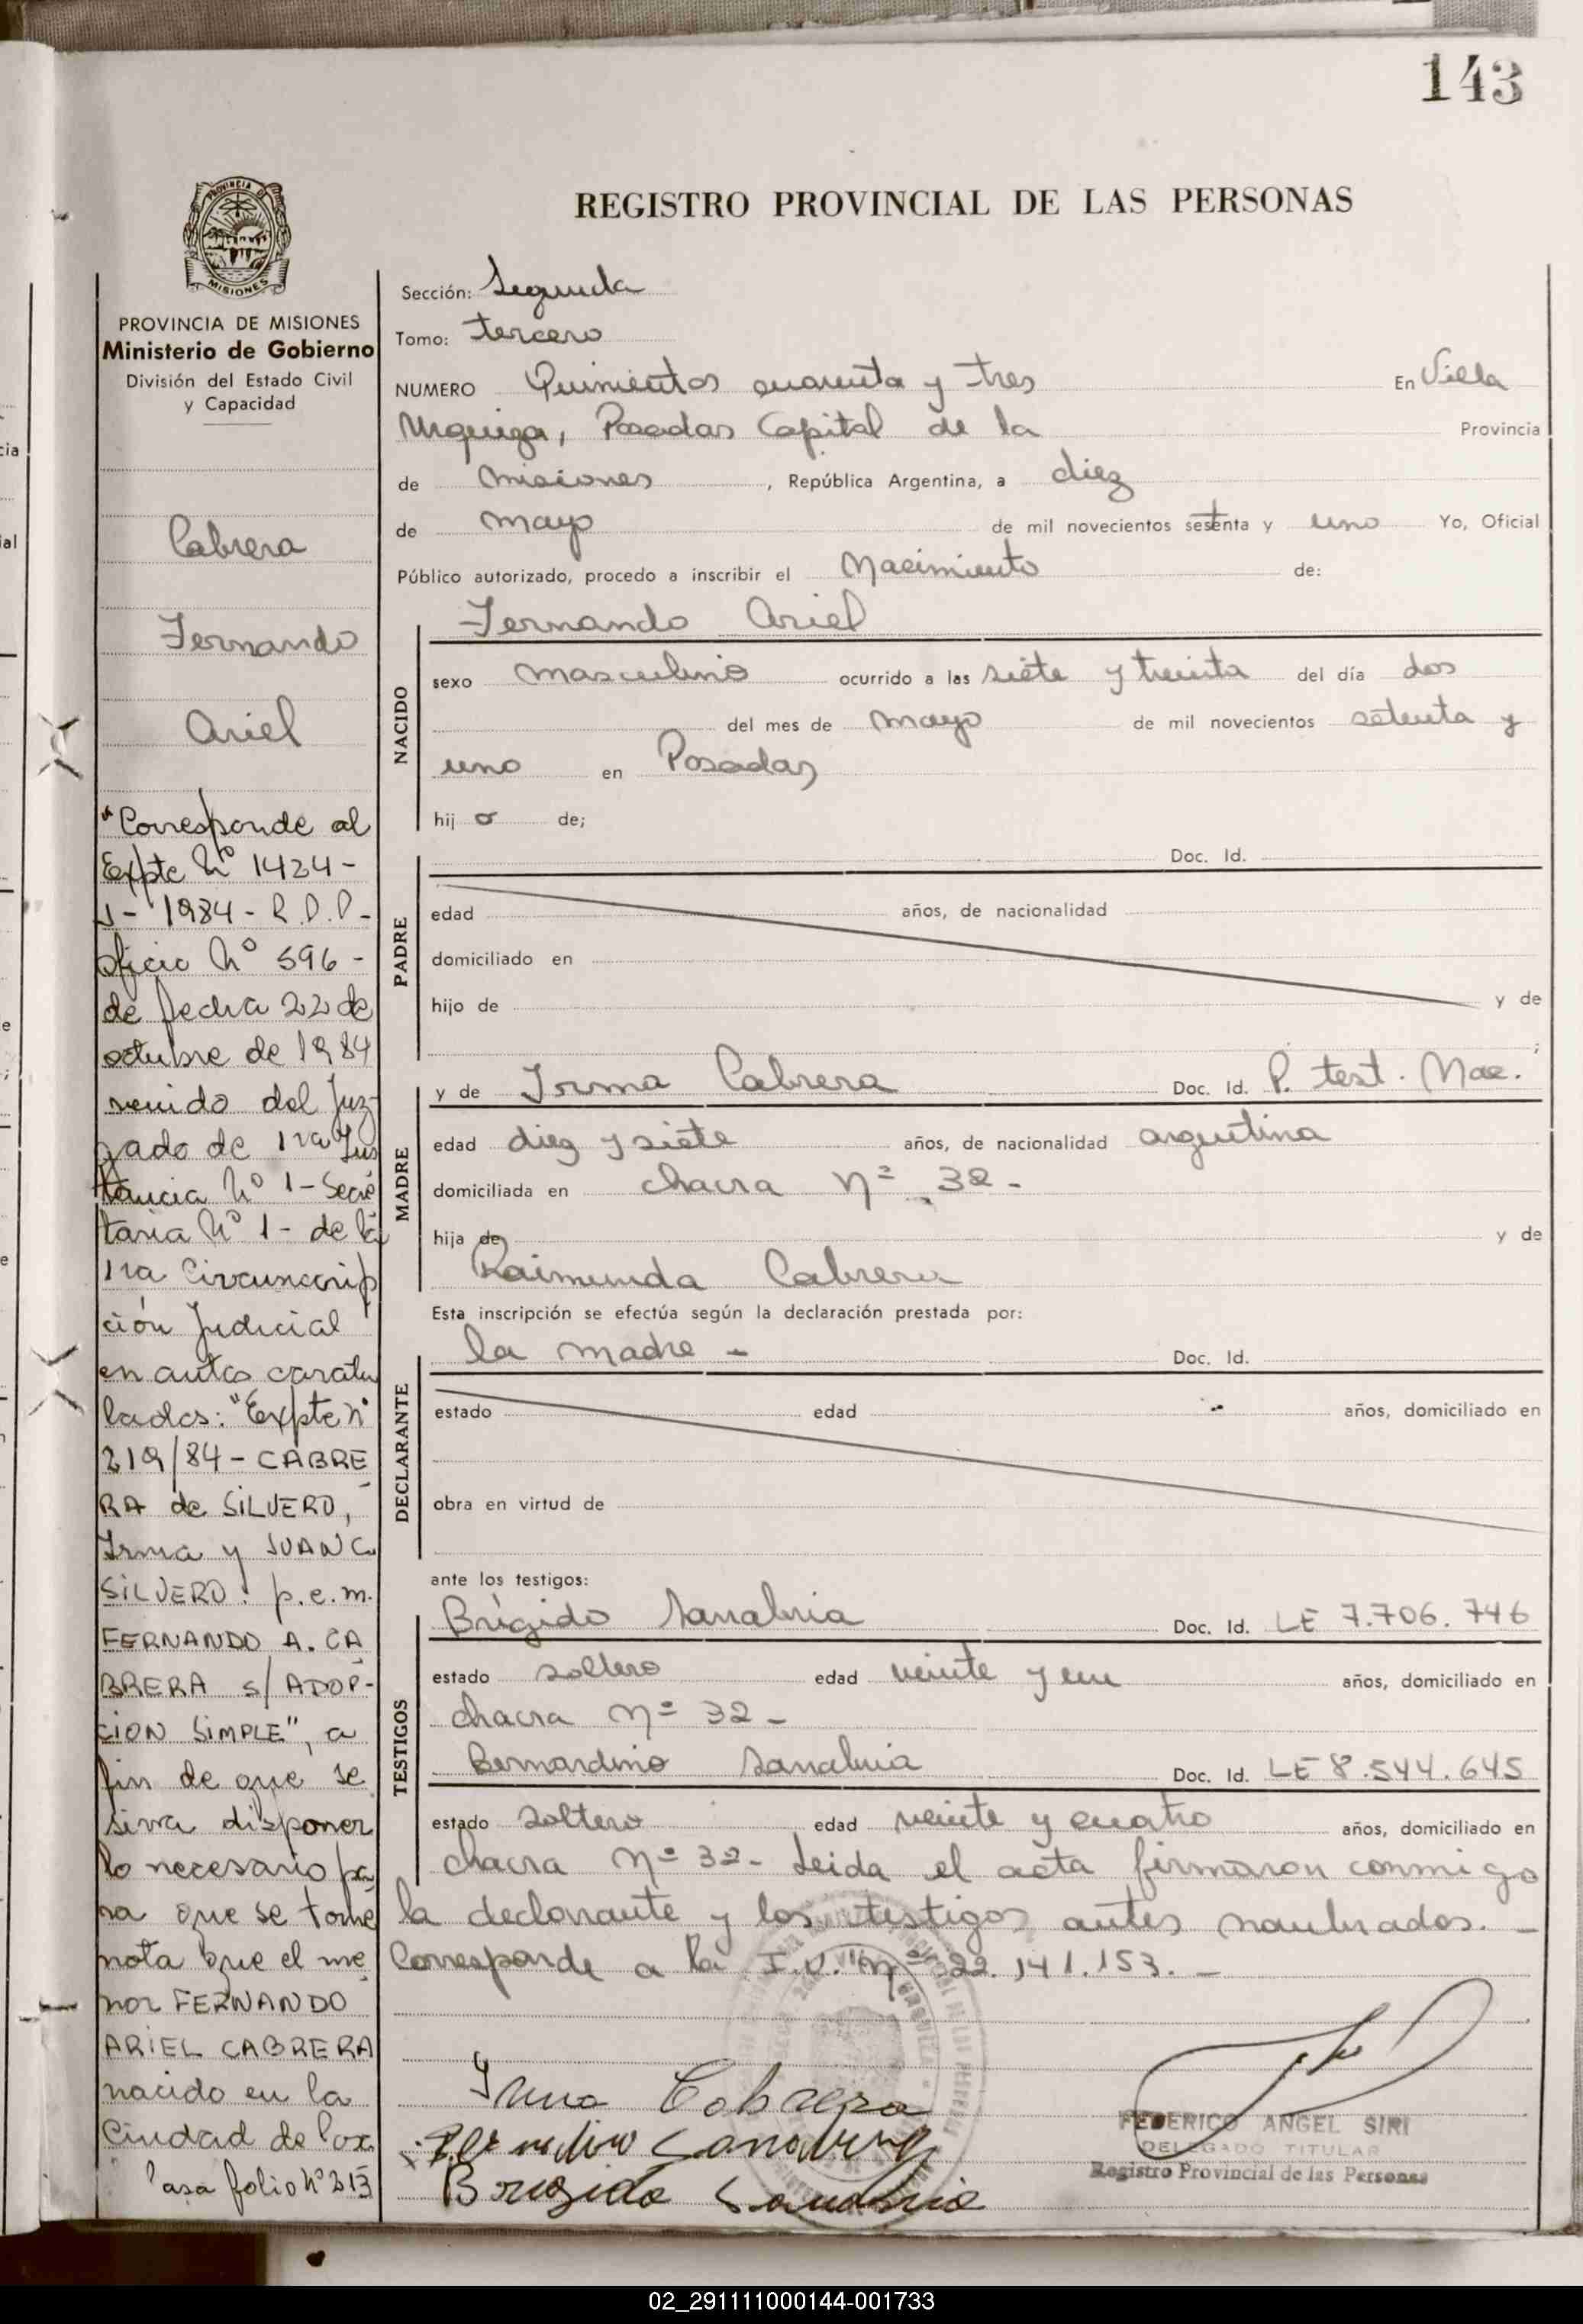 143
REGISTRO PROVINCIAL DE LAS PERSONAS
PROVINCIA DE MISIONES
Ministerio de Gobierno
División del Estado Civil
y Capacidad
Cabrera
Fernando
Ariel
"Corresponde al
Expte Nº 1424-
J-1984-R.P.P-
oficio Nº 596-
de fecha 22 de
octubre de 1984
venido del Juz-
gado de 1ra Ins
tancia Nº 1-Secre
taria Nº 1- de la
1ra Circunscrip
ción Judicial
en autos caratu
lados: "Expte nº
219/84-CABRE
RA de SILVERO,
Irma y JUAN C.
SILVERO: p.e.m.
FERNANDO A. CA
BRERA s/ ADOP-
CION SIMPLE", a
fin de que se
sirva disponer
lo necesario pa
ra que se tome
nota que el me
nor FERNANDO
ARIEL CABRERA
nacido en la
Ciudad de Pos.
Pasa folio Nº 213
Sección: Segunda
Tomo: tercero
NUMERO Quinientos cuarenta y tres En Villa
Urquiza, Posadas Capital de la Provincia
de Misiones, República Argentina, a diez
de mayo de mil novecientos setenta y uno Yo, Oficial
Público autorizado, procedo a inscribir el Nacimiento de:
Fernando Ariel
NACIDO
sexo masculino ocurrido a las siete y treinta del día dos
del mes de mayo de mil novecientos setenta y
uno en Posadas
hijo de;
PADRE
Doc. Id.
edad años, de nacionalidad
domiciliado en
hijo de y de
;
MADRE
y de Irma Cabrera Doc. Id. P. test. Nac.
edad diez y siete años, de nacionalidad argentina
domiciliada en chacra Nº 32-
hija de y de
Raimunda Cabrera
Esta inscripción se efectúa según la declaración prestada por:
la madre - Doc. Id.
DECLARANTE
estado edad años, domiciliado en
obra en virtud de
ante los testigos:
TESTIGOS
Brígido Sanabria Doc. Id. LE 7.706.746
estado soltero edad veinte y un años, domiciliado en
chacra Nº 32-
Bernardino Sanabria Doc. Id. LE 8.544.645
estado soltero edad veinte y cuatro años, domiciliado en
chacra Nº 32- Leida el acta firmaron conmigo
la declarante y los testigos antes nombrados. -
Corresponde a la I.D. Nº 22.141.153. -
Irma Cabrera
Bernardino Sanabria
Brigido Sanabria
FEDERICO ANGEL SIRI
DELEGADO TITULAR
Registro Provincial de las Personas
02_291111000144-001733